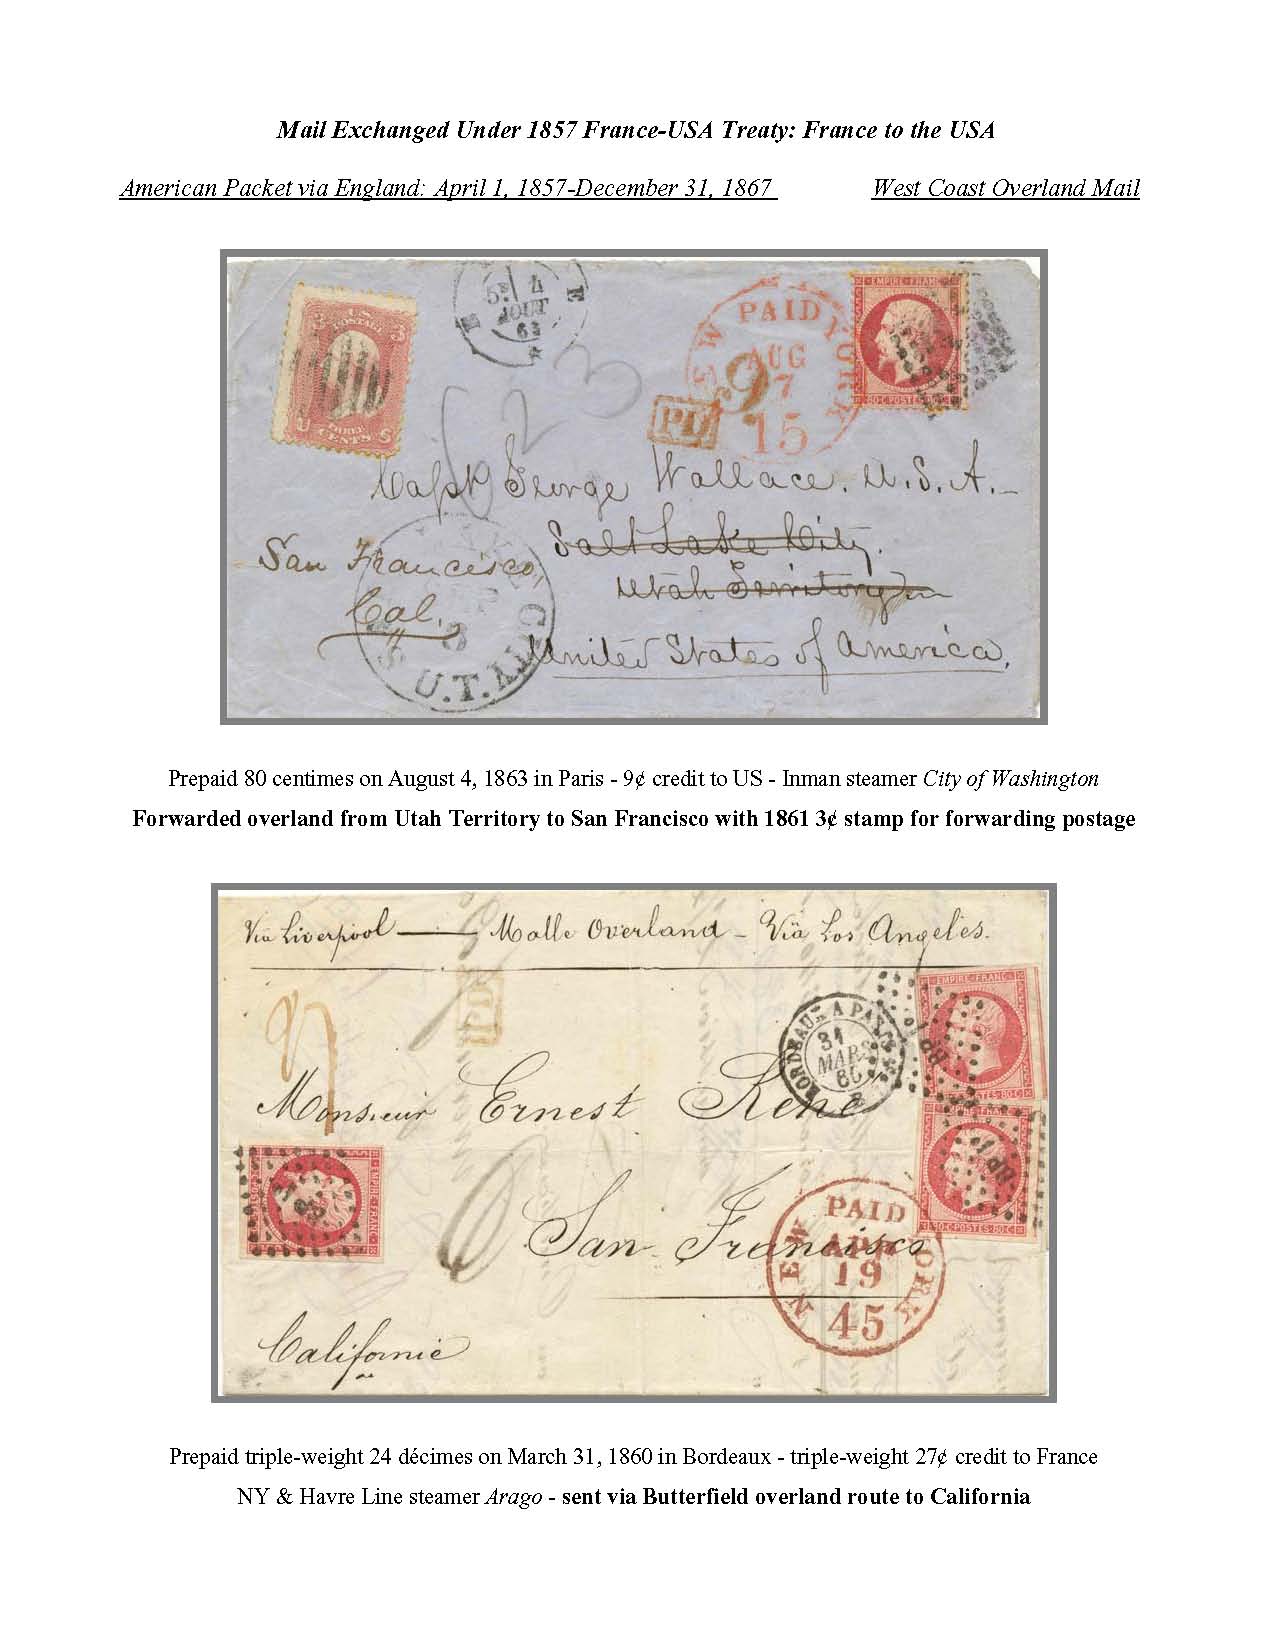 Mail Exchanged Under 1857 France-USA Treaty: France to the USA
American Packet via England: April 1, 1857-December 31, 1867 West Coast Overland Mail
3 U.S. POSTAGE 3
THREE CENTS
U S
5E 4
AOUT
63
NEW PAID YORK
AUG
7
15
9
PD
EMPIRE FRANC
80 C POSTES 80 C
23
Capt George Wallace. U.S.A.
Salt Lake City.
San Francisco,
Utah Territory
Cal.
CITY
U.T.
United States of America.
Prepaid 80 centimes on August 4, 1863 in Paris - 9¢ credit to US - Inman steamer City of Washington
Forwarded overland from Utah Territory to San Francisco with 1861 3¢ stamp for forwarding postage
Via Liverpool — Malle Overland - Viä Los Angelès.
EMPIRE FRANC
PD
BORDEAUX A PARIS
31
MARS
60
27
80 C POSTES 80 C
Monsieur Ernest René
EMPIRE FRANC
San Francisco
80 C POSTES 80 C
NEW PAID YORK
APR
19
45
Californie
Prepaid triple-weight 24 décimes on March 31, 1860 in Bordeaux - triple-weight 27¢ credit to France
NY & Havre Line steamer Arago - sent via Butterfield overland route to California